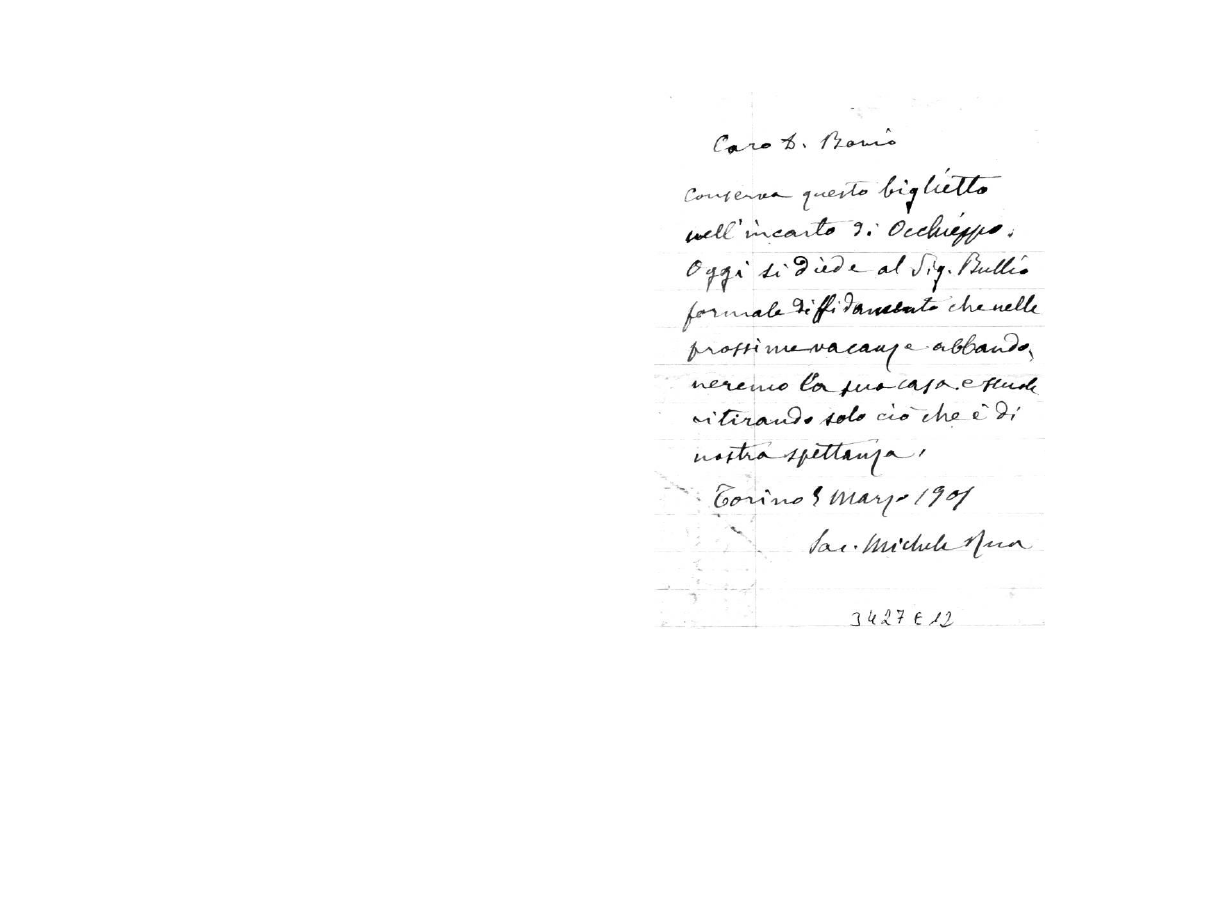 Caro D. Bonio
Conserva questo biglietto
nell'incarto di Occhieppo.
Oggi si diede al Sig. Bullio
formale diffidamento che nelle
prossime vacanze abbando,
neremo la sua casa e scuole
ritirando solo ciò che è di
nostra spettanza.
Torino 5 Marzo 1901
Sac. Michele Rua
3427 E 12